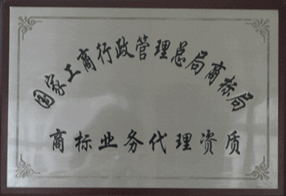 国家工商行政管理总局商标局
商标业务代理资质